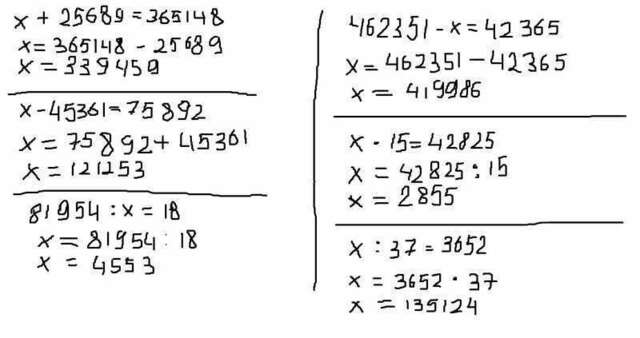 x + 25689 = 365148
x = 365148 - 25689
x = 339459
x - 45361 = 75892
x = 75892 + 45361
x = 121253
81954 : x = 18
x = 81954 : 18
x = 4553
462351 - x = 42365
x = 462351 - 42365
x = 419986
x · 15 = 42825
x = 42825 : 15
x = 2855
x : 37 = 3652
x = 3652 · 37
x = 135124